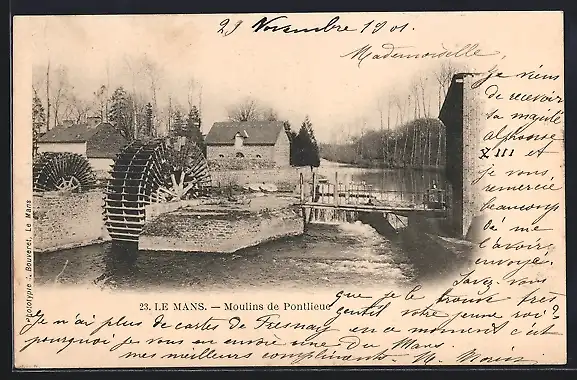 29 Novembre 1901
Mademoiselle
Je viens
de recevoir
sa majesté
alphonse
XIII et
je vous
remercie
beaucoup
de me
l'avoir
envoyé.
Savez-vous
que je le trouve très
gentil votre jeune roi?
23. LE MANS. — Moulins de Pontlieue
Je n'ai plus de cartes de Fresnay en ce moment c'est
pourquoi je vous en envoie une du Mans.
mes meilleurs compliments M.
Phototypie J. Bouveret, Le Mans